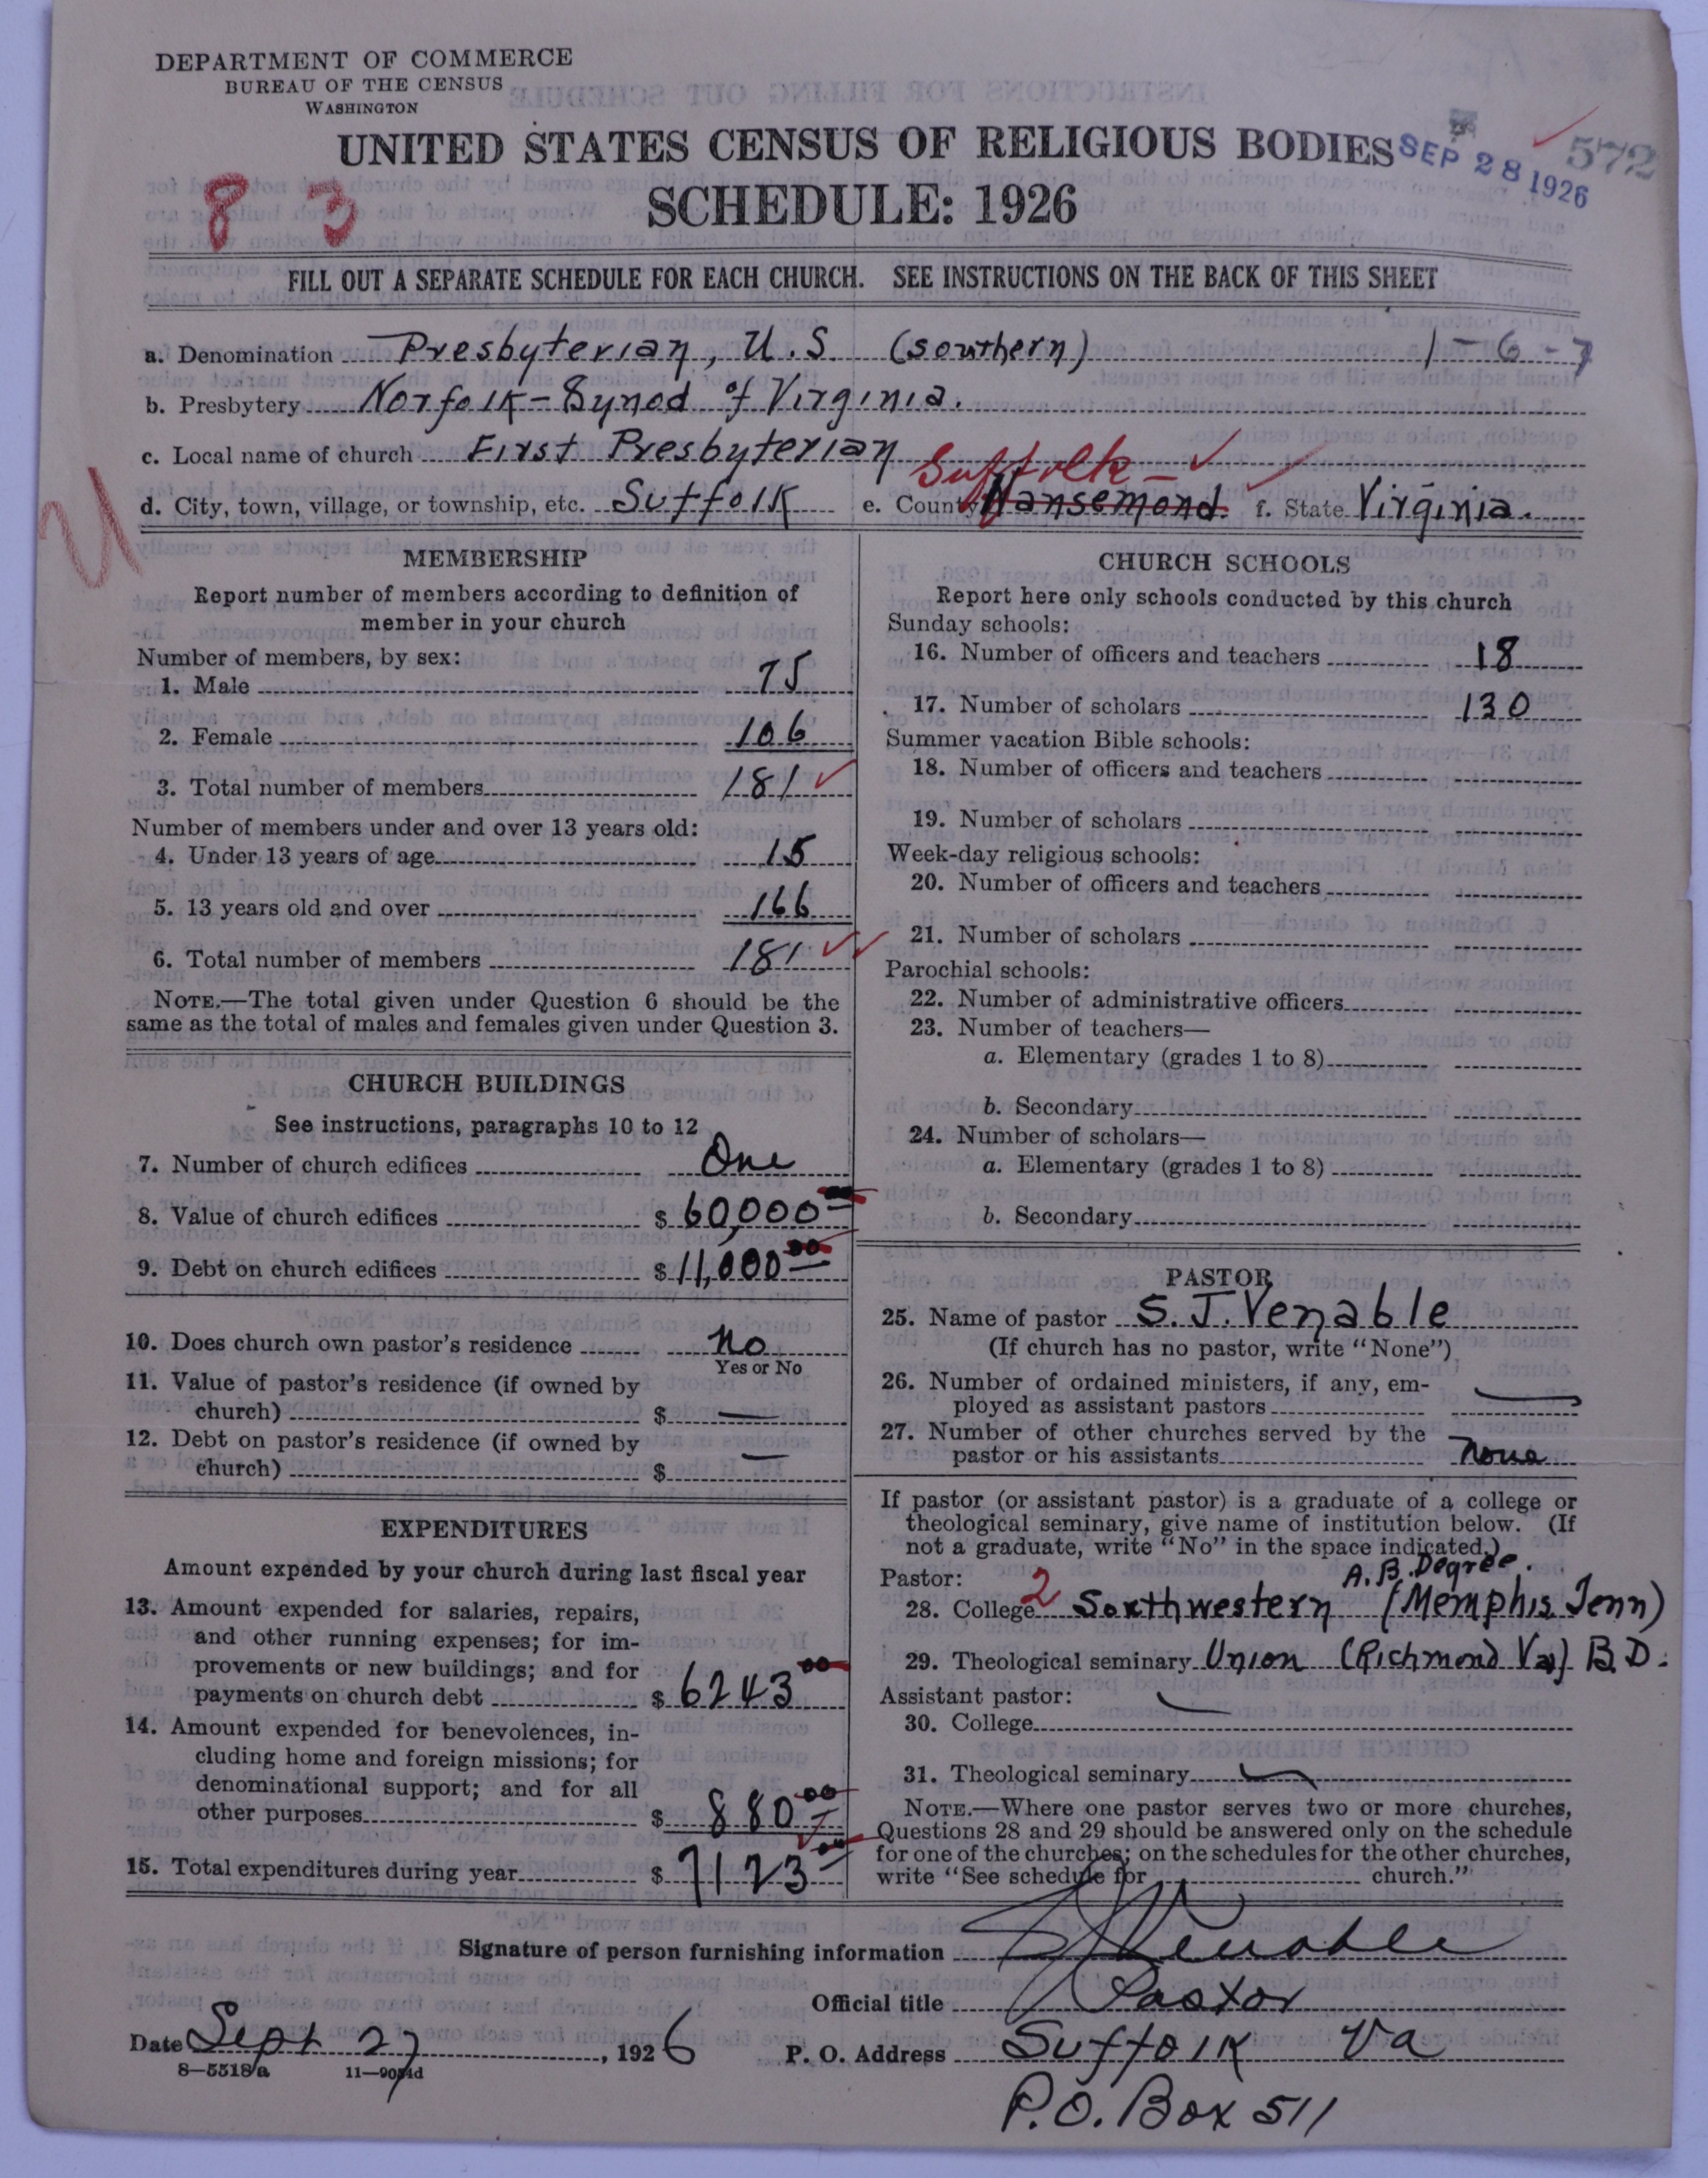 DEPARTMENT OF COMMERCE
BUREAU OF THE CENSUS
WASHINGTON
UNITED STATES CENSUS OF RELIGIOUS BODIES
SEP 28 1926
572
8 3
SCHEDULE: 1926
FILL OUT A SEPARATE SCHEDULE FOR EACH CHURCH. SEE INSTRUCTIONS ON THE BACK OF THIS SHEET
a. Denomination Presbyterian, U.S. (southern) 1-6-7
b. Presbytery Norfolk-Synod of Virginia.
c. Local name of church First Presbyterian
Suffolk
d. City, town, village, or township, etc. Suffolk e. County Nansemond. f. State Virginia.
MEMBERSHIP
Report number of members according to definition of
member in your church
Number of members, by sex:
1. Male 75
2. Female 106
3. Total number of members 181
Number of members under and over 13 years old:
4. Under 13 years of age 15
5. 13 years old and over 166
6. Total number of members 181
NOTE.—The total given under Question 6 should be the
same as the total of males and females given under Question 3.
CHURCH BUILDINGS
See instructions, paragraphs 10 to 12
7. Number of church edifices One
8. Value of church edifices $ 60,000
9. Debt on church edifices $ 11,000 00
10. Does church own pastor's residence no
Yes or No
11. Value of pastor's residence (if owned by
church) $ —
12. Debt on pastor's residence (if owned by
church) $ —
EXPENDITURES
Amount expended by your church during last fiscal year
13. Amount expended for salaries, repairs,
and other running expenses; for im-
provements or new buildings; and for
payments on church debt $ 6243 00
14. Amount expended for benevolences, in-
cluding home and foreign missions; for
denominational support; and for all
other purposes $ 880 00
15. Total expenditures during year $ 7123 00
CHURCH SCHOOLS
Report here only schools conducted by this church
Sunday schools:
16. Number of officers and teachers 18
17. Number of scholars 130
Summer vacation Bible schools:
18. Number of officers and teachers
19. Number of scholars
Week-day religious schools:
20. Number of officers and teachers
21. Number of scholars
Parochial schools:
22. Number of administrative officers
23. Number of teachers—
a. Elementary (grades 1 to 8)
b. Secondary
24. Number of scholars—
a. Elementary (grades 1 to 8)
b. Secondary
PASTOR
25. Name of pastor S. J. Venable
(If church has no pastor, write "None")
26. Number of ordained ministers, if any, em-
ployed as assistant pastors —
27. Number of other churches served by the
pastor or his assistants None
If pastor (or assistant pastor) is a graduate of a college or
theological seminary, give name of institution below. (If
not a graduate, write "No" in the space indicated.)
Pastor: A.B. Degree.
28. College 2 Southwestern (Memphis, Tenn)
29. Theological seminary Union (Richmond Va) B.D.
Assistant pastor:
30. College
31. Theological seminary
NOTE.—Where one pastor serves two or more churches,
Questions 28 and 29 should be answered only on the schedule
for one of the churches; on the schedules for the other churches,
write "See schedule for church."
Signature of person furnishing information S J Venable
Official title Pastor
Date Sept 27, 1926 P. O. Address Suffolk Va
8—5518a
P.O. Box 511